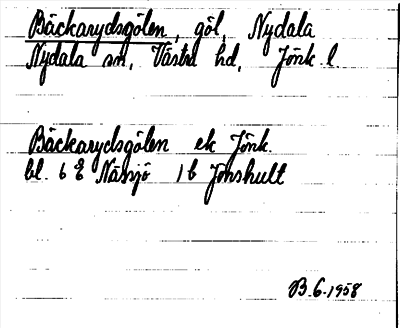 Bäckarydsgölen, göl, Nydala
Nydala sn, Västra hd, Jönk. l.
Bäckarydsgölen ek Jönk.
bl. 6 E Nässjö 1b Jonshult
B.6.1958